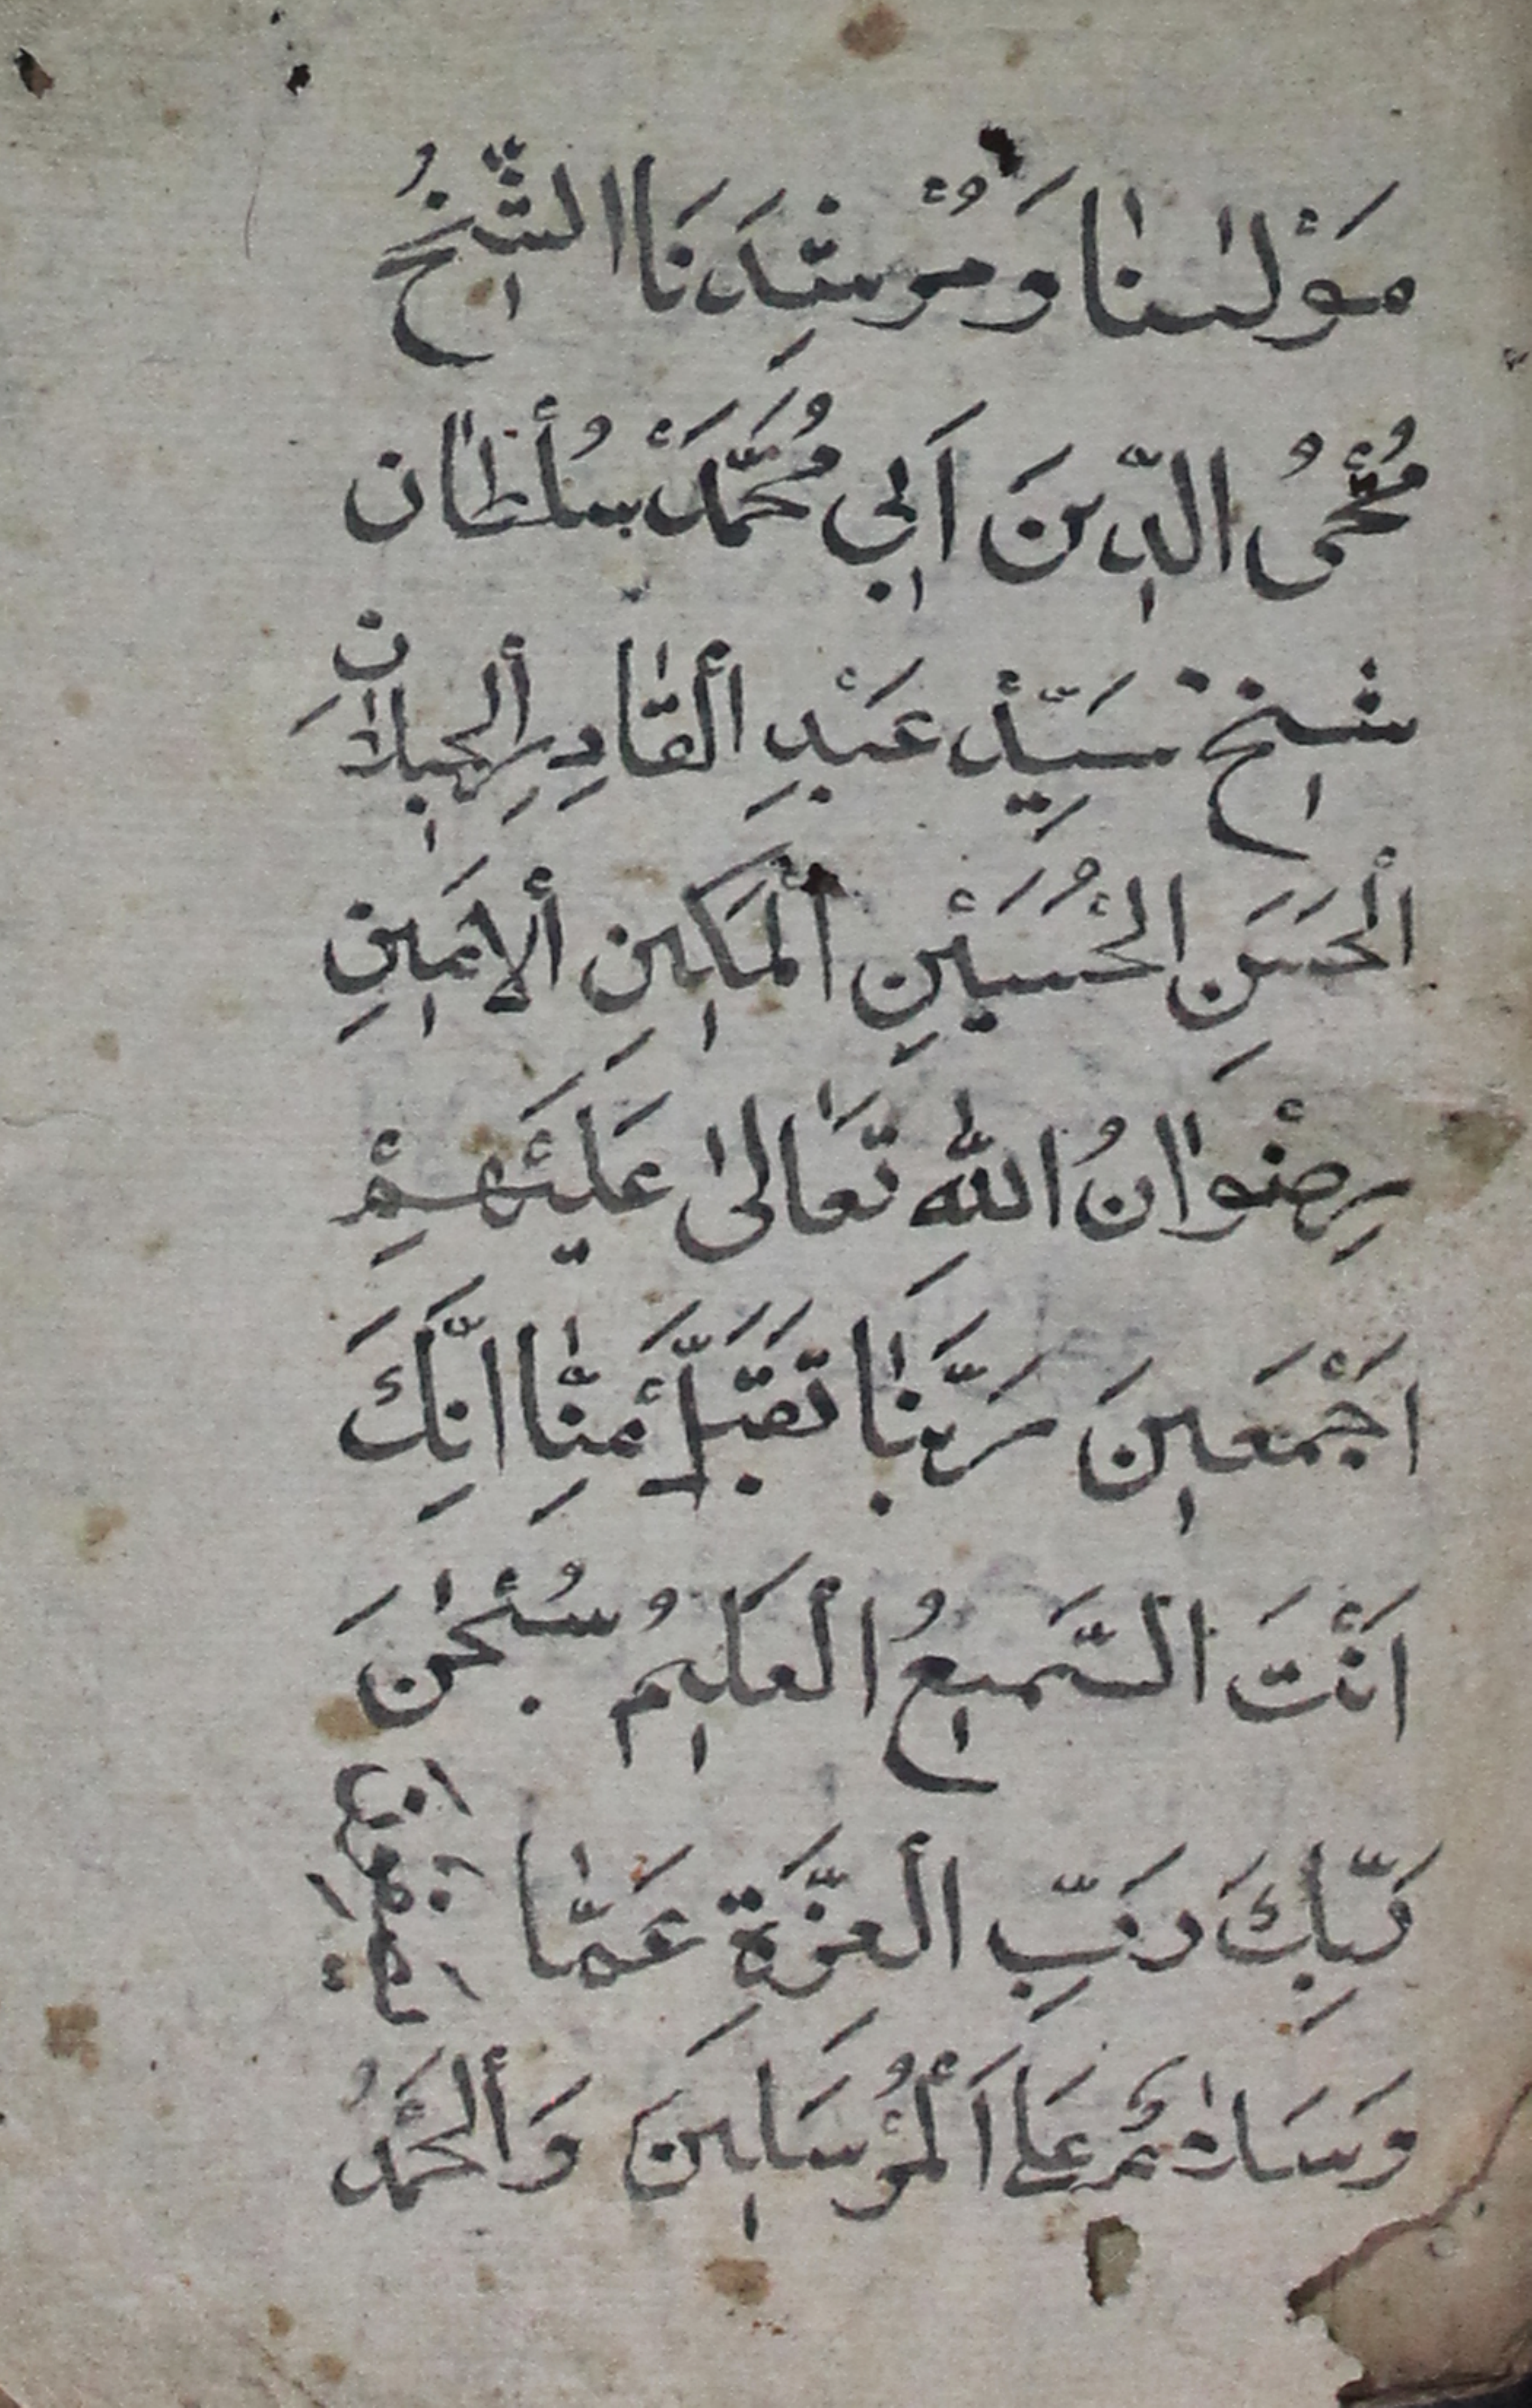 مَوْلٰىنٰا وَمُرْشِدَنَا الشَّيْخُ
مُحْيُ الدِّينَ اَبِي مُحَمَّدَ سُلْطَان
شيخ سَيِّدْ عَبْدِ الْقٰادِرِ الْجيلَانِ
الْحَسَنِ الْحُسَيْنِ الْمَكِينِ الْاَمِينِ
رِضْوَانُ اللّٰهِ تَعَالىٰ عَلَيْهِمْ
اَجْمَعِينَ رَبَّنٰا تَقَبَّلْ مِنّٰا اِنَّكَ
اَنْتَ السَّمِيعُ الْعَلِيمُ سُبْحٰنَ
رَبِّكَ رَبِّ الْعِزَّةِ عَمّٰا
وَسَلٰمٌ عَلَي الْمُرْسَلِينَ وَالْحَمْدُ